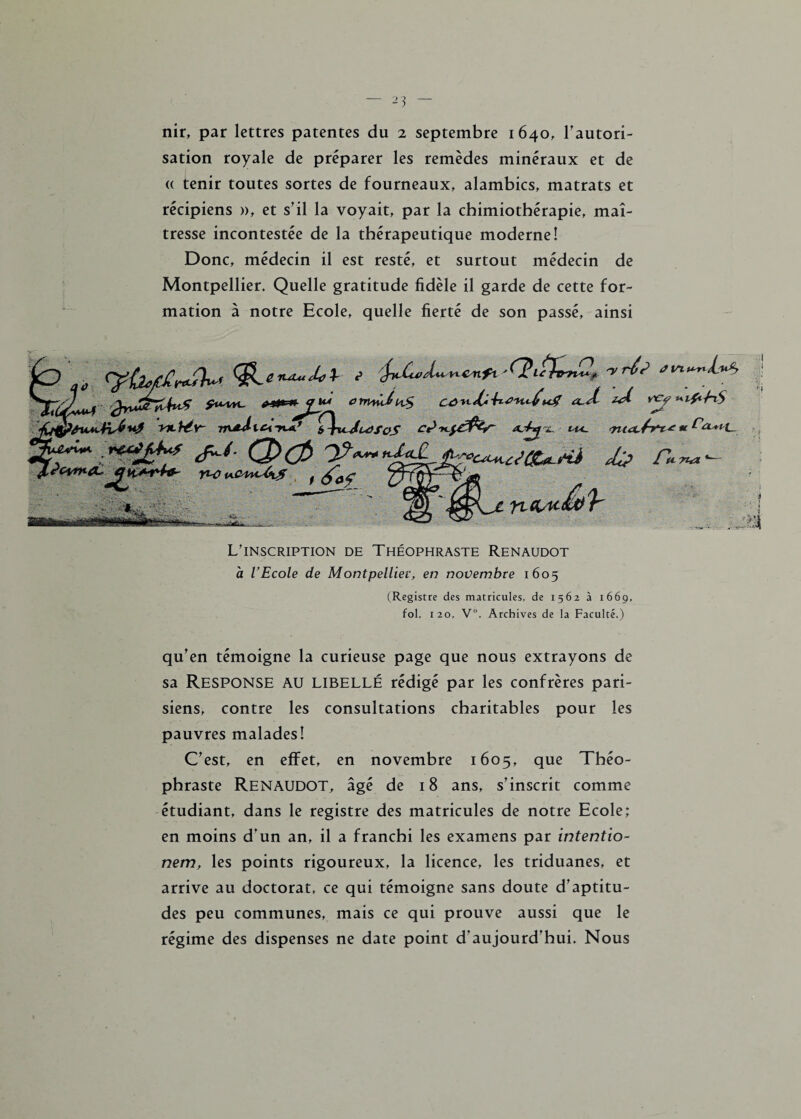 — 23 —
nir, par lettres patentes du 2 septembre 1640, l'autori-
sation royale de préparer les remèdes minéraux et de
« tenir toutes sortes de fourneaux, alambics, matrats et
récipiens », et s'il la voyait, par la chimiothérapie, maî-
tresse incontestée de la thérapeutique moderne!
Donc, médecin il est resté, et surtout médecin de
Montpellier. Quelle gratitude fidèle il garde de cette for-
mation à notre Ecole, quelle fierté de son passé, ainsi
Renaudot
L'INSCRIPTION DE THÉOPHRASTE RENAUDOT
à l'Ecole de Montpellier, en novembre 1605
(Registre des matricules, de 1562 à 1669,
fol. 120, V°. Archives de la Faculté.)
qu'en témoigne la curieuse page que nous extrayons de
sa RESPONSE AU LIBELLÉ rédigé par les confrères pari-
siens, contre les consultations charitables pour les
pauvres malades!
C'est, en effet, en novembre 1605, que Théo-
phraste RENAUDOT, âgé de 18 ans, s'inscrit comme
étudiant, dans le registre des matricules de notre Ecole;
en moins d'un an, il a franchi les examens par intentio-
nem, les points rigoureux, la licence, les triduanes, et
arrive au doctorat, ce qui témoigne sans doute d'aptitu-
des peu communes, mais ce qui prouve aussi que le
régime des dispenses ne date point d'aujourd'hui. Nous